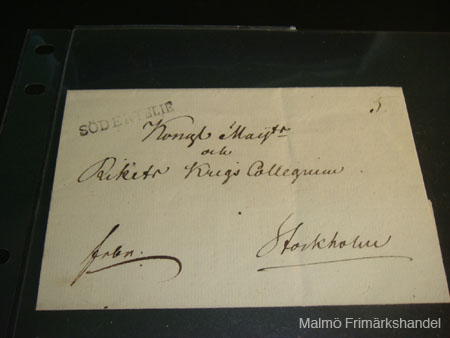 SÖDERTELIE
5.
Kongl Maijts
och
Rikets Krigs Collegium
frbr.
Stockholm
Malmö Frimärkshandel